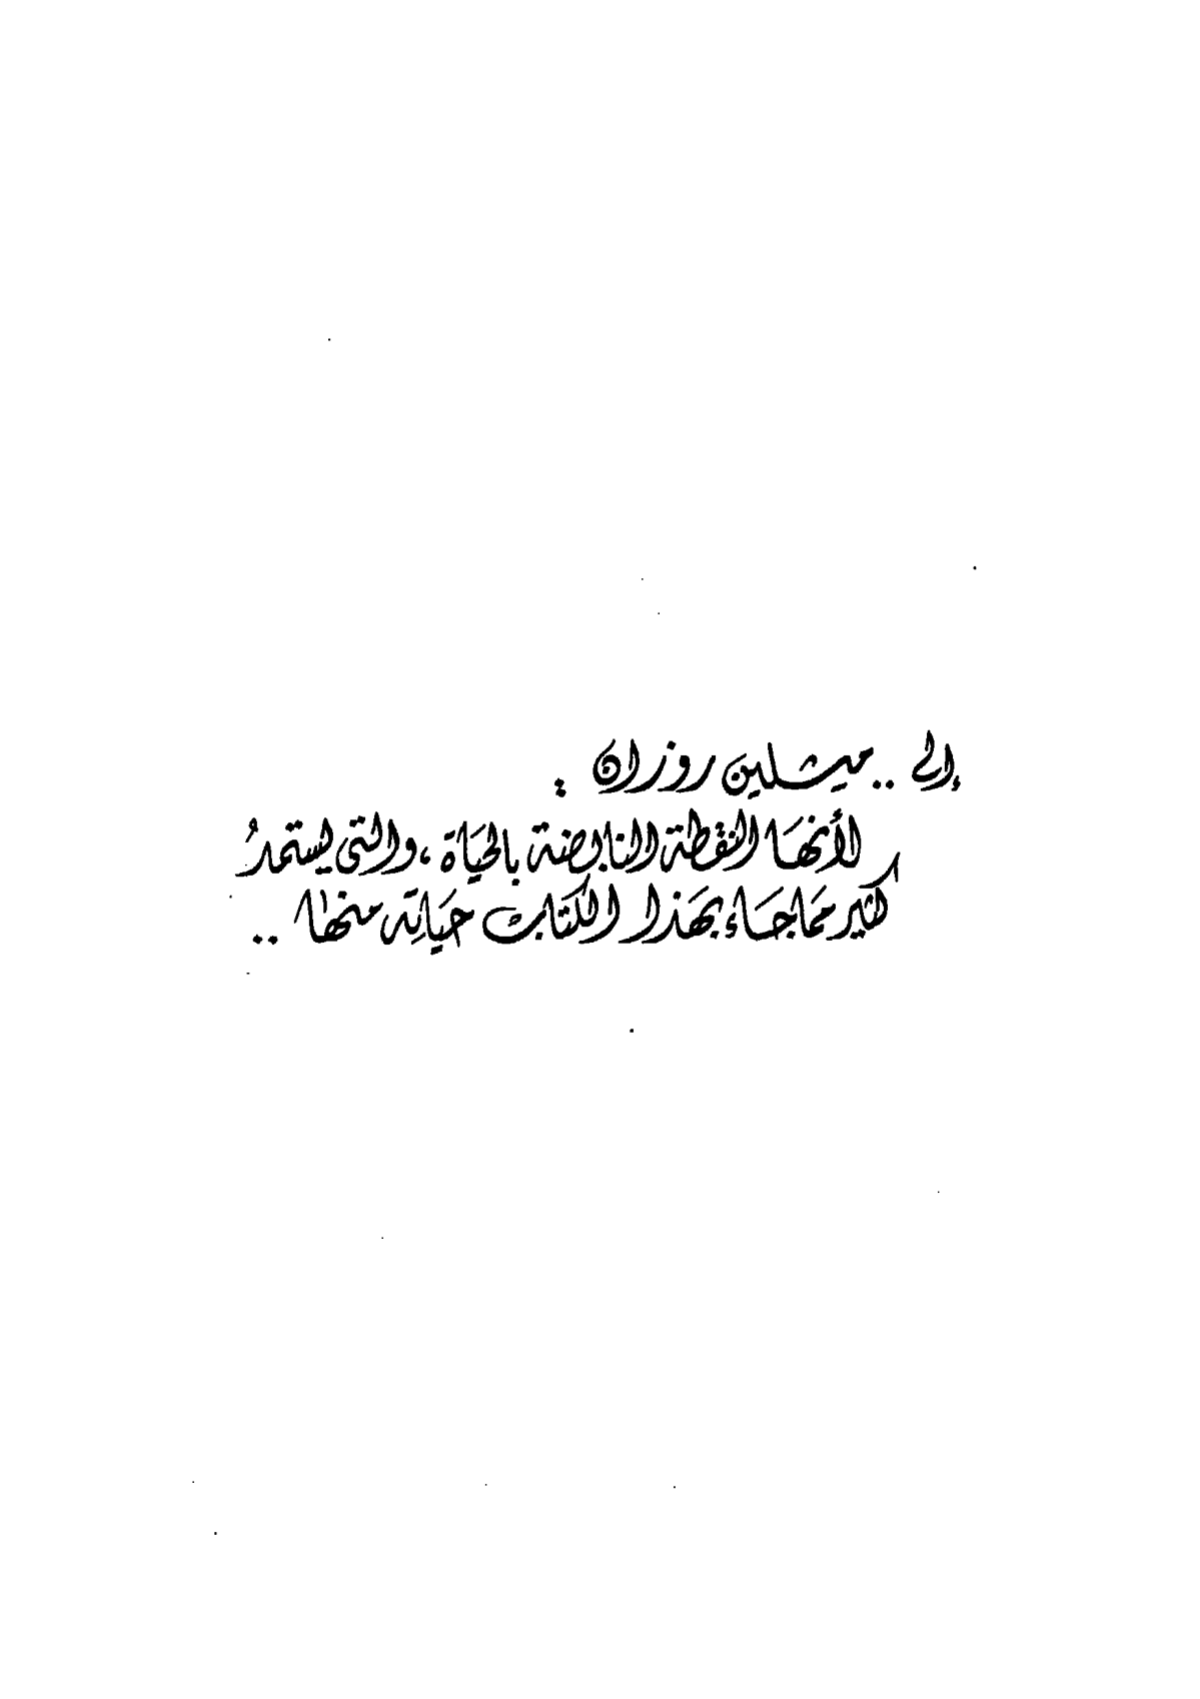 إلى .. ميشلين روزان :
لأنهَا النقطة النابضة بالحيَاة ، والتى يستمدُ
كثير ممَا جَاء بهَذا الكتَاب حيَاتِه منهَا ..